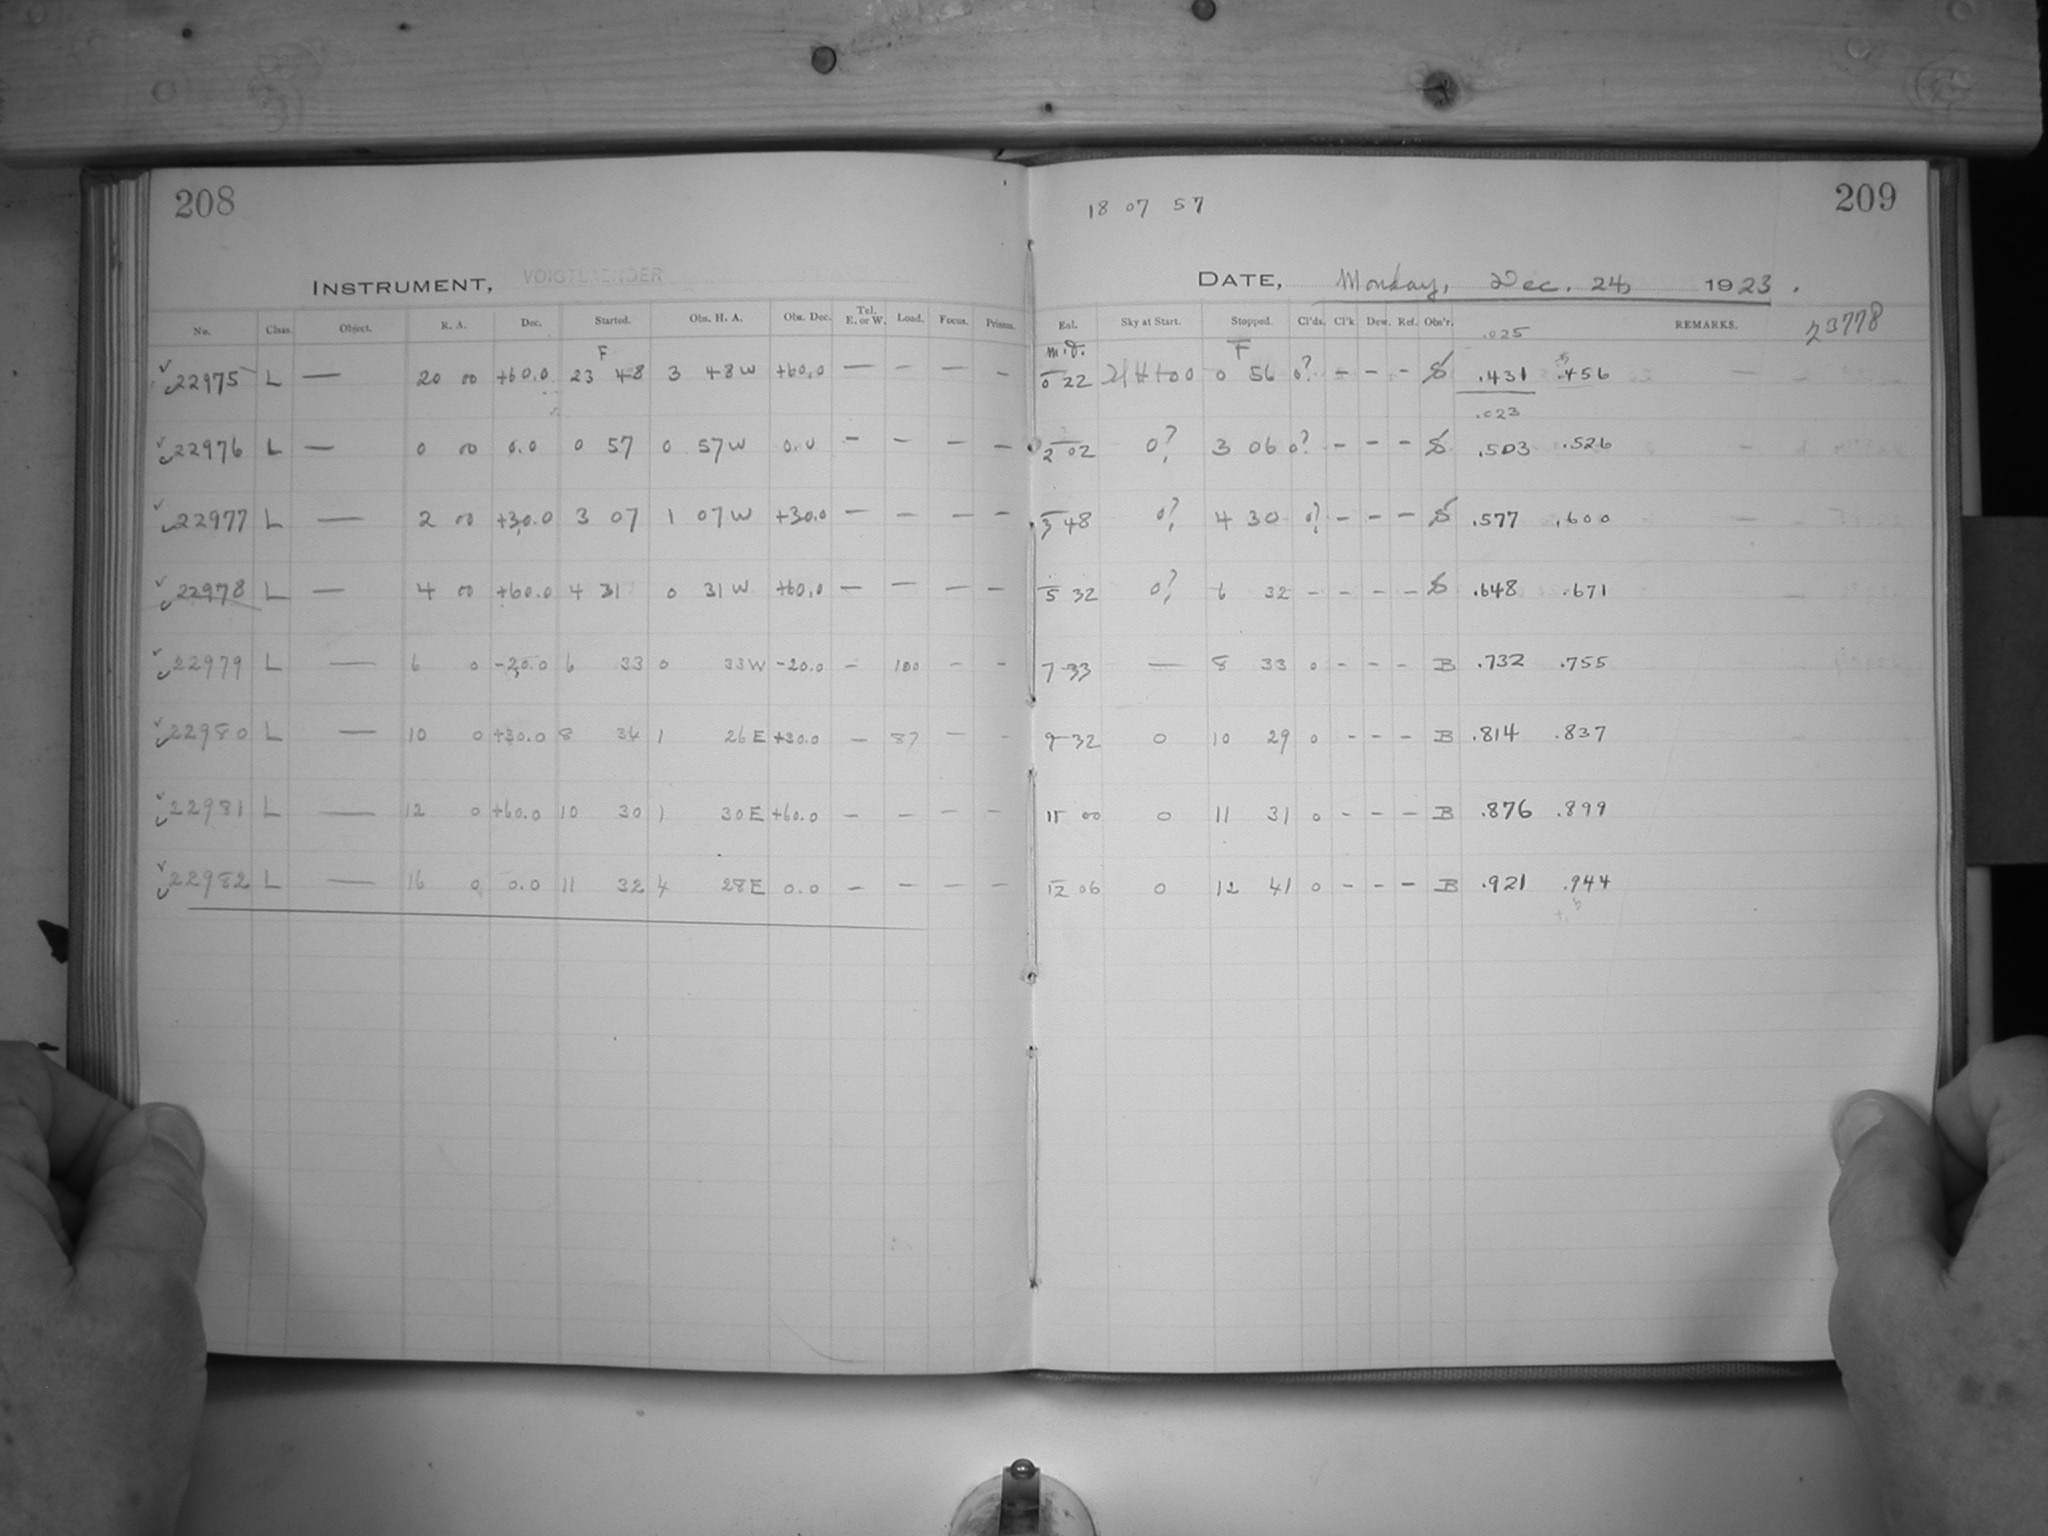 208
18 07 57
209
INSTRUMENT, VOIGTLAENDER
DATE, Monday, Dec. 24, 1923.
No. Class. Object. R. A. Dec. Started. Obs. H. A. Obs. Dec. Tel. E. or W. Load. Focus. Prisms. Eul. Sky at Start. Stopped. Cl'ds. Cl'k Dew. Ref. Obs'r. .025 REMARKS. 23778
F m.d. F
22975 L — 20 00 +60.0 23 48 3 48W +60.0 — — — — 0 22 0 56 0? – – – S .431 .456
.023
22976 L — 0 00 0.0 0 57 0 57W 0.0 — — — — 2 02 0? 3 06 0? – – – S .503 .526
22977 L — 2 00 +30.0 3 07 1 07W +30.0 — — — — 3 48 0? 4 30 0? – – – S .577 .600
22978 L — 4 00 +60.0 4 31 0 31W +60.0 — — — — 5 32 0? 6 32 – – – – S .648 .671
22979 L — 6 0 -20.0 6 33 0 33W -20.0 – 100 – – 7 33 — 8 33 0 – – – B .732 .755
22980 L — 10 0 +30.0 8 34 1 26E +30.0 – 87 – – 9 32 0 10 29 0 – – – B .814 .837
22981 L — 12 0 +60.0 10 30 1 30E +60.0 – – – – 11 00 0 11 31 0 – – – B .876 .899
22982 L — 16 0 0.0 11 32 4 28E 0.0 – – – – 12 06 0 12 41 0 – – – B .921 .944